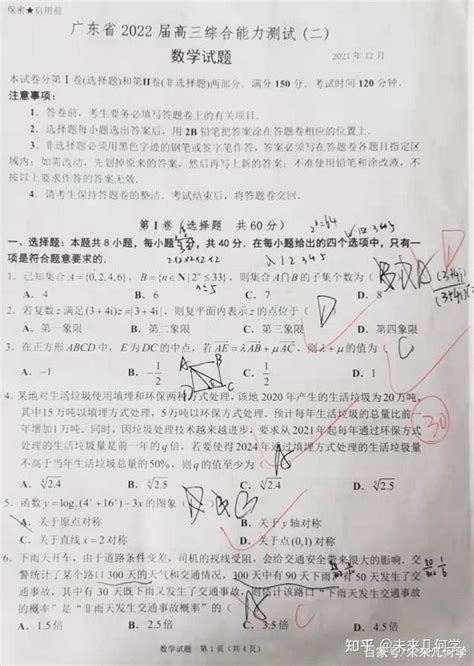 保密★启用前
广东省 2022 届高三综合能力测试(二)
数学试题
2021 年 12 月
本试卷分第 I 卷(选择题)和第II卷(非选择题)两部分. 满分 150 分. 考试时间 120 分钟.
注意事项:
1. 答卷前, 考生要务必填写答题卷上的有关项目.
2. 选择题每小题选出答案后, 用 2B 铅笔把答案涂在答题卷相应的位置上.
3. 非选择题必须用黑色字迹的钢笔或签字笔作答, 答案必须写在答题卷各题目指定区
域内; 如需改动, 先划掉原来的答案, 然后再写上新的答案; 不准使用铅笔和涂改液, 不
按以上要求作答的答案无效.
4. 请考生保持答题卷的整洁. 考试结束后, 将答题卷交回.
第 I 卷 (选择题 共 60 分)
一、选择题: 本题共 8 小题, 每小题 5 分, 共 40 分. 在每小题给出的四个选项中, 只有一
项是符合题意要求的.
2×2×2×2×2
n=5
1. 已知集合 A={0,2,4,6}, B={n∈N|2ⁿ≤33}, 则集合 A∩B 的子集个数为( )
A. 4 B. 6 C. 7 D. 8
2. 若复数 z 满足(3+4i)z=|3+4i|, 则复平面内表示 z 的点位于( D )
A. 第一象限 B. 第二象限 C. 第三象限 D. 第四象限
3. 在正方形 ABCD 中, E 为 DC 的中点, 若 AE=λAB+μAC, 则 λ+μ 的值为( C )
A. -1 B. -1/2 C. 1/2 D. 1
A B
E C
4. 某地对生活垃圾使用填埋和环保两种方式处理, 该地 2020 年产生的生活垃圾为 20 万吨,
其中15万吨以填埋方式处理, 5万吨以环保方式处理. 预计每年生活垃圾的总量比前一
年增加1万吨. 同时, 因垃圾处理技术越来越进步, 要求从2021年起每年通过环保方式
处理的生活垃圾量是前一年的 q 倍, 若要使得 2024 年通过填埋方式处理的生活垃圾量
不高于当年生活垃圾总量的50%, 则 q 的值至少为
30
5. 函数 y=log₂(4ˣ+16ˣ)-3x 的图象( )
A. 关于原点对称 B. 关于 y 轴对称
C. 关于直线 x=2 对称 D. 关于点(0,1)对称
6. 下雨天开车, 由于道路条件变差, 司机的视线受阻, 会给交通安全带来很大的影响. 交
警统计了某个路口 300 天的天气和交通情况, 300 天中有 90 天下雨
的概率” 是 “非雨天发生交通事故概率” 的( )
A. 3倍 B. 3.5倍 D. 4.5倍
数学试题 第 1 页 (共 4 页)
知乎 @未来几何学
百家号/未来几何学